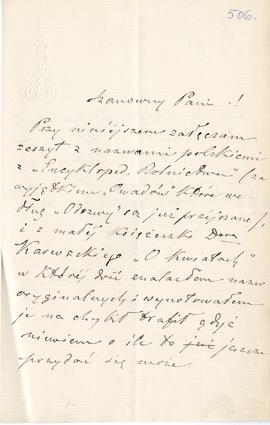 506.
Szanowny Panie!!
Przy niniejszem załączam
zeszyt z nazwami polskiemi
z „Encykloped. Rolnictwa” (za
wyjątkiem „Owadów” które we-
dług „Odezwy” są już przejrzane)
i z małej książeczki
Karwackiego „O kwiatach”
w której dość znalazłem nazw
oryginalnych i wynotowałem
je na chybił trafił gdyż
niewiem o ile to już jeszcze
przydać się może.